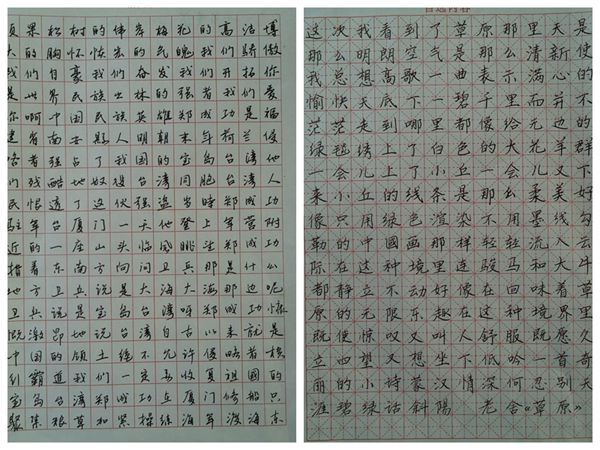 夏果松树的伟岸梅花的高洁博
大的胸怀恢宏的民魄我们骄傲
我们自豪我们奋发我们开拓你
是世界民族丛林的强者我们爱
你啊中国民族英雄郑成功是福
建省南安县人明朝末年荷兰侵
略者强占了我国的宝岛台湾他
们残酷地奴役台湾同胞台湾人
民恨透了这伙强盗当时郑成功
驻军台厦门一天他登上军营附
近的一座山头临风眺望郑成功
指着东南方向问卫兵那是什么
地方卫兵说是大海大海那边呢
卫兵说是宝岛台湾呀郑成功慷
慨激昂地说台湾自古以来就是
中国的领土绝不允许侵略者横
行霸道我们一定要收复祖国的
宝岛台湾郑成功在厦门修船只
聚集粮草和紧操练海军渡海东
自选内容
这次我看到了草原那里天是
那么明朗空气是那么清新使
我总想高歌一曲表示满心的
愉快天底下一碧千里而并不
茫茫走到哪里都像给无边的
绿毯绣上了白色的大花羊群
一会儿上了小丘一会儿又下
来小丘的线条是那么柔美好
像只用绿色渲染不用墨线勾
勒的中国画那样轻轻流入云
际在这种境里连骏马和大牛
都静立不动好像在回味着草
原的无限乐趣在这种境界里
既使惊叹又叫人舒服既愿久
立四望又想坐下低吟一首奇
丽的小诗蒙汉情深何忍别天
涯碧绿话斜阳 老舍《草原》